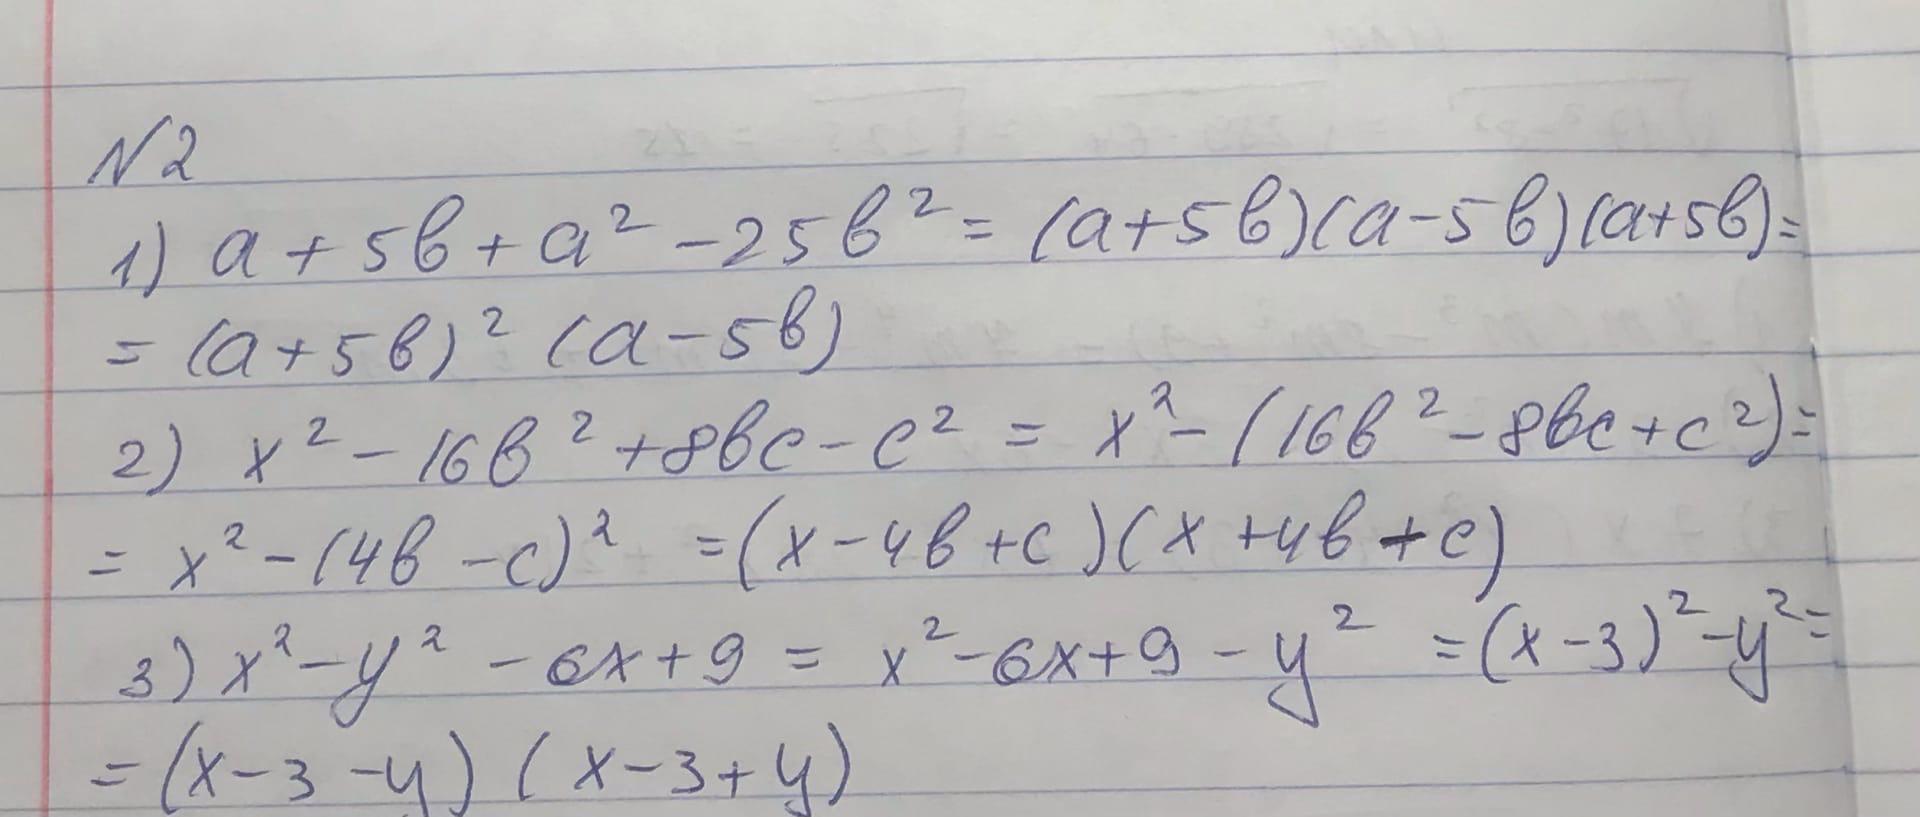 N2
1) a + 5b + a² - 25b² = (a+5b)(a-5b)(a+5b)=
= (a+5b)² (a-5b)
2) x² - 16b² + 8bc - c² = x² - (16b² - 8bc + c²) =
= x² - (4b - c)² = (x - 4b + c)(x + 4b + c)
3) x² - y² - 6x + 9 = x² - 6x + 9 - y² = (x - 3)² - y² =
= (x - 3 - y) (x - 3 + y)